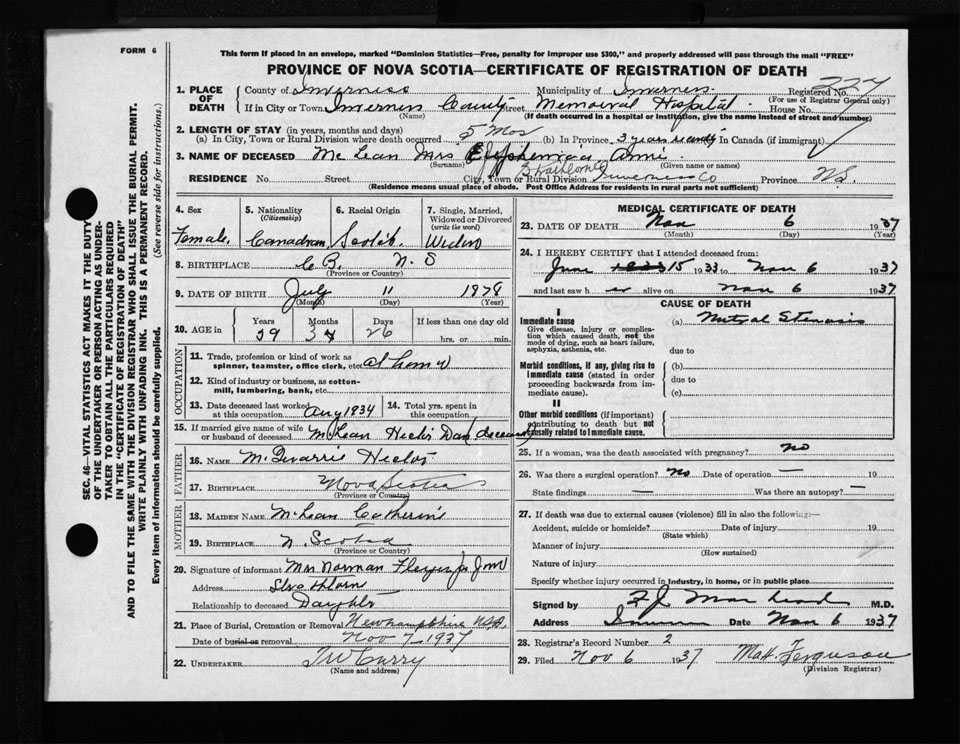 FORM 6
This form if placed in an envelope, marked "Dominion Statistics—Free, penalty for improper use $300," and properly addressed will pass through the mail "FREE"
PROVINCE OF NOVA SCOTIA—CERTIFICATE OF REGISTRATION OF DEATH
1. PLACE OF DEATH
County of Inverness Municipality of Inverness Registered No. 227
(For use of Registrar General only)
If in City or Town Inverness County Street Memorial Hospital House No.
(Name) (If death occurred in a hospital or institution, give the name instead of street and number)
2. LENGTH OF STAY (in years, months and days)
(a) In City, Town or Rural Division where death occurred 5 Mos (b) In Province 3 years (c) In Canada (if immigrant)
3. NAME OF DECEASED McLean Mrs Annie
(Surname) (Given name or names)
RESIDENCE No. Street City, Town or Rural Division Strathlorne Inverness Co Province N.S.
(Residence means usual place of abode. Post Office Address for residents in rural parts not sufficient)
4. Sex Female
5. Nationality (Citizenship) Canadian
6. Racial Origin Scotch
7. Single, Married, Widowed or Divorced (write the word) Widow
8. BIRTHPLACE C B. N. S
(Province or Country)
9. DATE OF BIRTH July 11
(Month) (Day) (Year)
10. AGE in Years 59 Months 3 Days 26 If less than one day old hrs. or min.
OCCUPATION
11. Trade, profession or kind of work as spinner, teamster, office clerk, etc. at home
12. Kind of industry or business, as cotton-mill, lumbering, bank, etc.
13. Date deceased last worked at this occupation Aug 1934
14. Total yrs. spent in this occupation
15. If married give name of wife or husband of deceased McLean Hector Dan deceased
FATHER
16. NAME McQuarrie Hector
17. BIRTHPLACE Nova Scotia
(Province or Country)
MOTHER
18. MAIDEN NAME McLean Catherine
19. BIRTHPLACE N. Scotia
(Province or Country)
20. Signature of informant Mrs Norman
Address Strathlorn
Relationship to deceased Daughter
21. Place of Burial, Cremation or Removal Newhampshire USA
Date of burial or removal Nov 7 1937
22. UNDERTAKER TW Curry
(Name and address)
MEDICAL CERTIFICATE OF DEATH
23. DATE OF DEATH Nov 6 1937
(Month) (Day) (Year)
24. I HEREBY CERTIFY that I attended deceased from:
June 15 1933 to Nov 6 1937
and last saw h er alive on Nov 6 1937
CAUSE OF DEATH
I
Immediate cause (a) Mitral Stenosis
Give disease, injury or complication which caused death, not the mode of dying, such as heart failure, asphyxia, asthenia, etc.
due to
Morbid conditions, if any, giving rise to immediate cause (stated in order proceeding backwards from immediate cause).
(b)
due to
(c)
II
Other morbid conditions (if important) contributing to death but not causally related to immediate cause.
25. If a woman, was the death associated with pregnancy? no
26. Was there a surgical operation? No Date of operation — 19
State findings — Was there an autopsy? —
27. If death was due to external causes (violence) fill in also the following:—
Accident, suicide or homicide? Date of injury 19
(State which)
Manner of injury
(How sustained)
Nature of injury
Specify whether injury occurred in industry, in home, or in public place
Signed by M.D.
Address Date Nov 6 1937
28. Registrar's Record Number 2
29. Filed Nov 6 1937 Matt. Ferguson
(Division Registrar)
SEC. 46—VITAL STATISTICS ACT MAKES IT THE DUTY
OF THE UNDERTAKER OR PERSON ACTING AS UNDERTAKER TO OBTAIN ALL THE PARTICULARS REQUIRED
IN THE "CERTIFICATE OF REGISTRATION OF DEATH"
AND TO FILE THE SAME WITH THE DIVISION REGISTRAR WHO SHALL ISSUE THE BURIAL PERMIT.
WRITE PLAINLY WITH UNFADING INK. THIS IS A PERMANENT RECORD.
Every item of information should be carefully supplied. (See reverse side for instructions.)